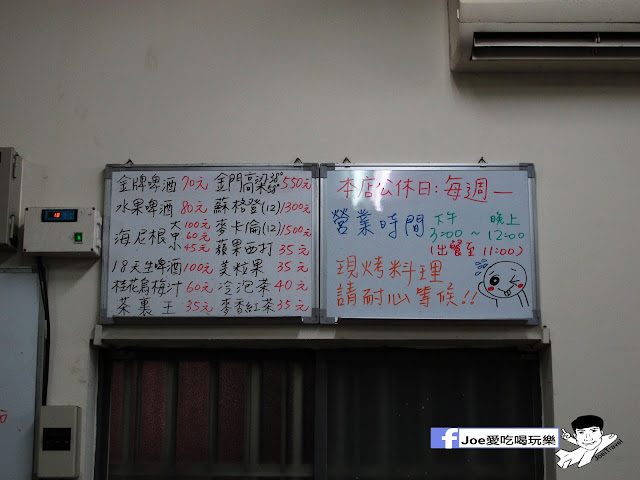 金牌啤酒 70元 金門高梁 38° 58° 550元
水果啤酒 80元 蘇格登(12) 1300元
海尼根 大100元 中60元 小45元 麥卡倫(12) 1500元
蘋果西打 35元
18天生啤酒 100元 美粒果 35元
桂花烏梅汁 60元 冷泡茶 40元
茶裏王 35元 麥香紅茶 35元
本店公休日:每週一
營業時間 下午 晚上
3:00 ~ 12:00
(出餐至 11:00)
現烤料理
請耐心等候!!
f Joe愛吃喝玩樂